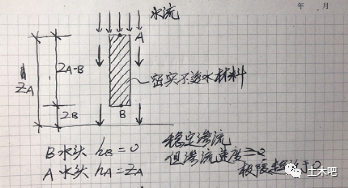 年 月
水流
A
ZA-B
ZA
密实不透水材料
ZB
B
B水头 hB=0
A水头 hA=ZA
稳定渗流
但渗流速度≥0
极限趋近于0
土木吧